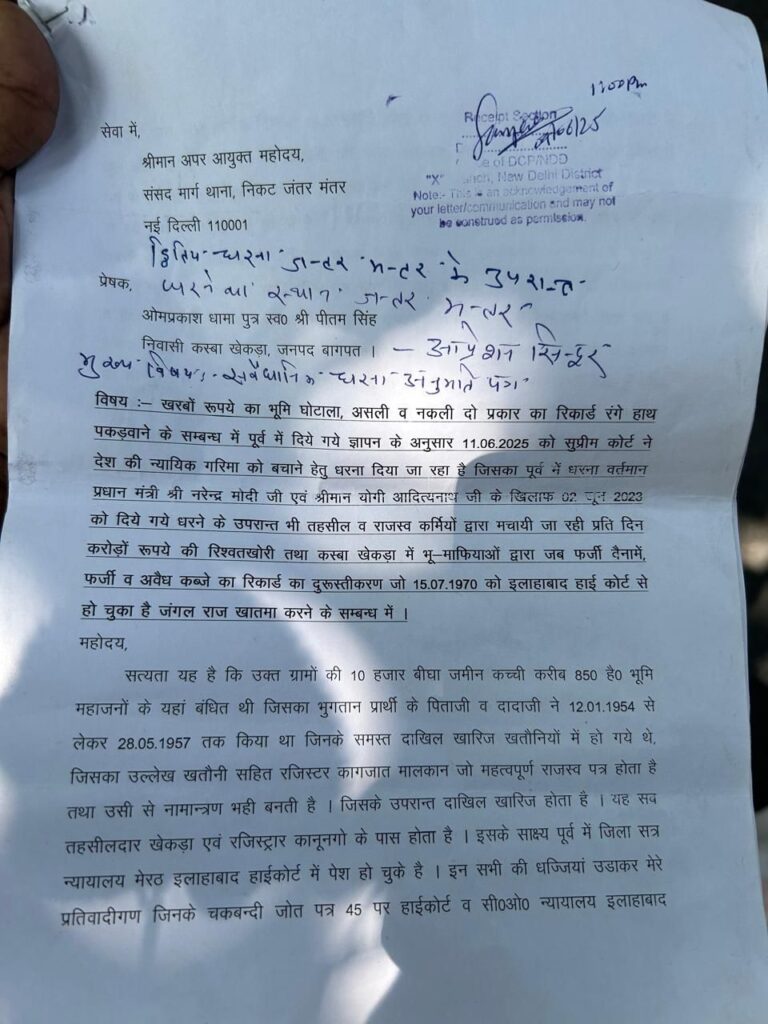 1:00 Pm
Receipt Section
/06/25
सेवा में,
श्रीमान अपर आयुक्त महोदय,
of DCP/NDD
"X" nch, New Delhi District
संसद मार्ग थाना, निकट जंतर मंतर
Note:- This is an acknowledgement of
your letter/communication and may not
be construed as permission.
नई दिल्ली 110001
द्वितिय धरना जन्तर मन्तर के उपरान्त
प्रेषक,
धरने का स्थान जन्तर मन्तर
ओमप्रकाश धामा पुत्र स्व0 श्री पीतम सिंह
निवासी कस्बा खेकड़ा, जनपद बागपत । – आप्रेशन सिन्दूर
मुख्य विषय: सवैधानिक धरना अनुमति पत्र
विषय :– खरबों रूपये का भूमि घोटाला, असली व नकली दो प्रकार का रिकार्ड रंगे हाथ
पकड़वाने के सम्बन्ध में पूर्व में दिये गये ज्ञापन के अनुसार 11.06.2025 को सुप्रीम कोर्ट ने
देश की न्यायिक गरिमा को बचाने हेतु धरना दिया जा रहा है जिसका पूर्व में धरना वर्तमान
प्रधान मंत्री श्री नरेन्द्र मोदी जी एवं श्रीमान योगी आदित्यनाथ जी के खिलाफ 02 जून 2023
को दिये गये धरने के उपरान्त भी तहसील व राजस्व कर्मियों द्वारा मचायी जा रही प्रति दिन
करोड़ों रूपये की रिश्वतखोरी तथा कस्बा खेकड़ा में भू–माफियाओं द्वारा जब फर्जी दैनामें,
फर्जी व अवैध कब्जे का रिकार्ड का दुरूस्तीकरण जो 15.07.1970 को इलाहाबाद हाई कोर्ट से
हो चुका है जंगल राज खातमा करने के सम्बन्ध में ।
महोदय,
सत्यता यह है कि उक्त ग्रामों की 10 हजार बीघा जमीन कच्ची करीब 850 है0 भूमि
महाजनों के यहां बंधित थी जिसका भुगतान प्रार्थी के पिताजी व दादाजी ने 12.01.1954 से
लेकर 28.05.1957 तक किया था जिनके समस्त दाखिल खारिज खतौनियों में हो गये थे,
जिसका उल्लेख खतौनी सहित रजिस्टर कागजात मालकान जो महत्वपूर्ण राजस्व पत्र होता है
तथा उसी से नामान्त्रण भही बनती है । जिसके उपरान्त दाखिल खारिज होता है । यह सव
तहसीलदार खेकड़ा एवं रजिस्ट्रार कानूनगो के पास होता है । इसके साक्ष्य पूर्व में जिला सत्र
न्यायालय मेरठ इलाहाबाद हाईकोर्ट में पेश हो चुके है । इन सभी की धज्जियां उडाकर मेरे
प्रतिवादीगण जिनके चकबन्दी जोत पत्र 45 पर हाईकोर्ट व सी0ओ0 न्यायालय इलाहाबाद